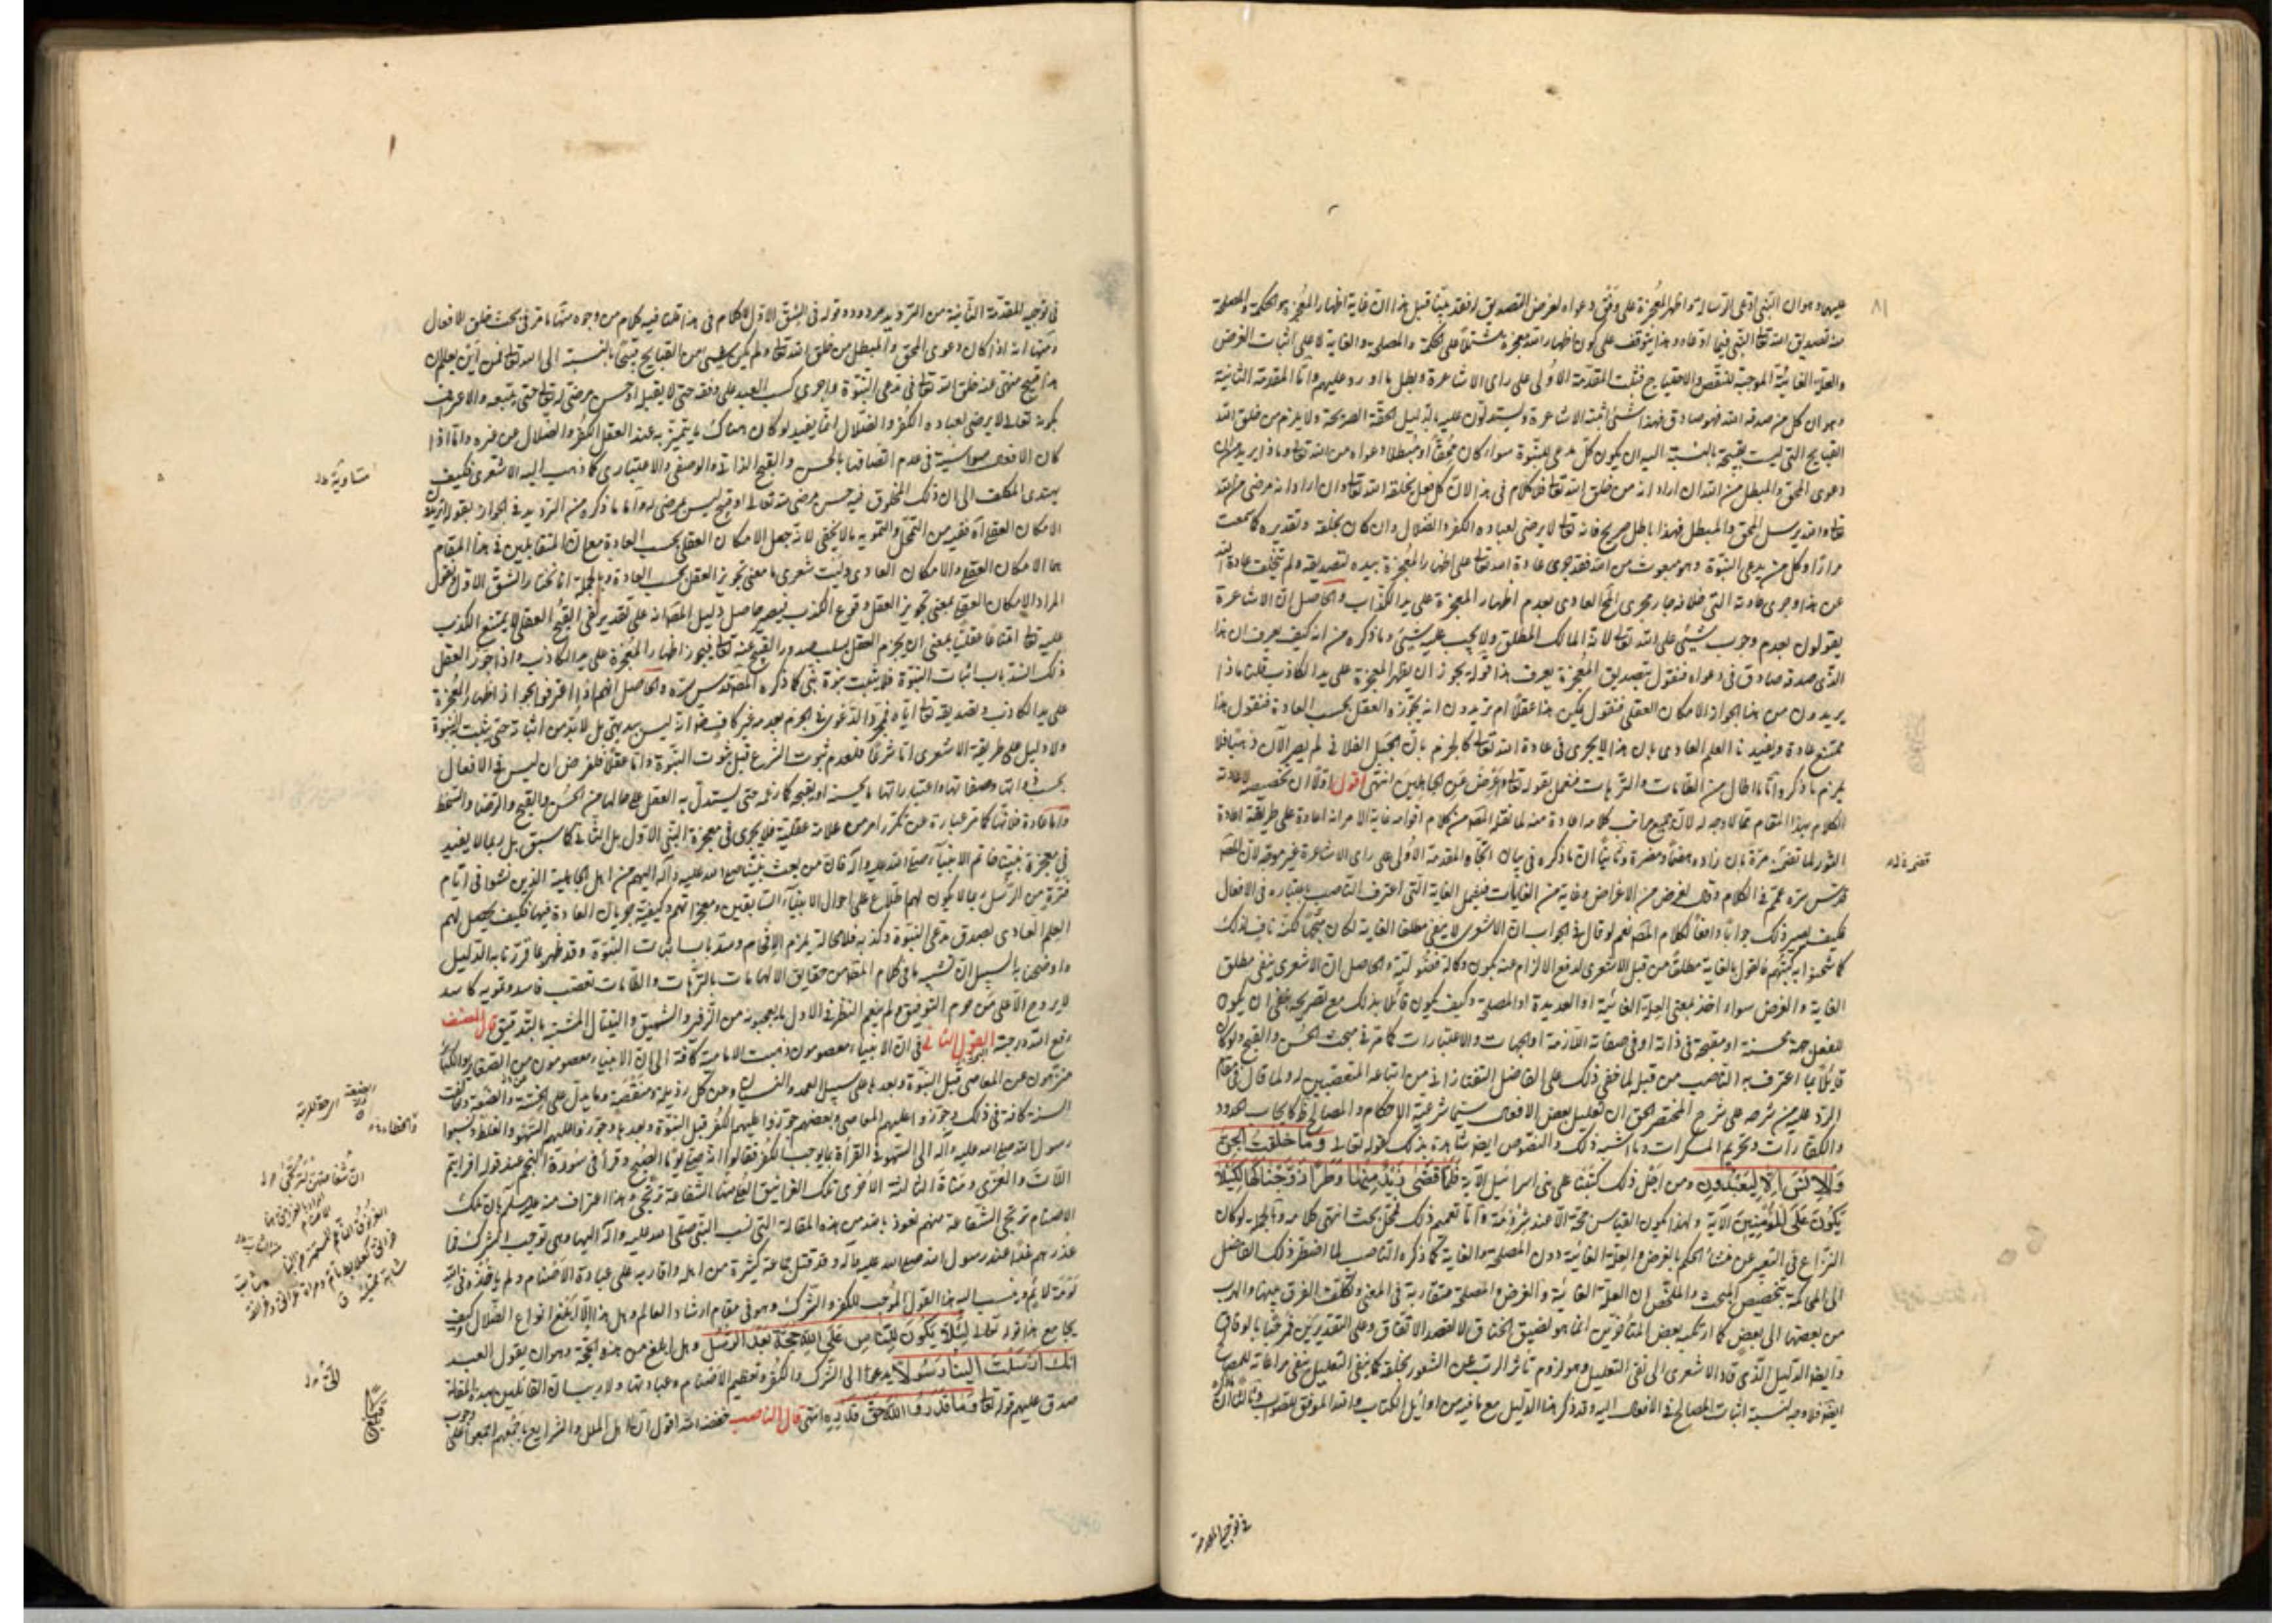 ٨١
عليهما وهو ان النبي ادعى الرسالة واظهر المعجزة على وفق دعواه لغرض التصديق له فقد بينا قبل هذا ان غاية اظهار المعجزة والحكمة والمصلحة
منه تصديق الله تعا النبي فيما ادعاه وهذا يتوقف على كون اظهار المعجزة مشتملا على الحكمة والمصلحة والغاية لا على اثبات الغرض
والعلة الغائية الموجبة للنقص والاحتياج فثبت المقدمة الاولى على راى الاشاعرة وبطل ما اورد عليهم واما المقدمة الثانية
وهو ان كل من صدقه الله فهو صادق فهذا شئ اثبته الاشاعرة ويستدلون عليه بالدليل الحقة الصريحة ولا يلزم من خلق الله
القبايح التي ليست بقبيحة بالنسبة اليه ان يكون كل مدعى للنبوة سواء كان محقا او مبطلا دعواه من الله تعا وماذا يريد من ان
دعوى المحق والمبطل من الله ان اراد انه من خلق الله تعا فلا كلام في هذا لان كل فعل يخلقه الله تعا وان اراد انه مرضى من الله
تعا والله يرسل المحق والمبطل فهذا باطل صريح فانه تعا لا يرضى لعباده الكفر والضلال وان كان بخلقه وتقديره كما سمعت
مرارا وكل من يدعى النبوة وهو مبعوث من الله فقد جرى عادة الله تعا على اظهار المعجزة بيده لتصديقه ولم يتخلف عادة الله
عن هذا وجرى عادته التي خلافه جار مجرى المح العادى بعدم اظهار المعجزة على يد الكذاب والحاصل ان الاشاعرة
يقولون بعدم وجوب شئ على الله تعا لانه المالك المطلق ولا يجب عليه شئ وما ذكره من انه كيف يعرف ان هذا
الذى صدقه صادق في دعواه فنقول بتصديق المعجزة يعرف هذا قوله يجوز ان يظهر المعجزة على يد الكاذب قلنا ماذا
يريدون من هذا الجواز الامكان العقلى فنقول يمكن هذا عقلا ام تريدون انه يجوزه العقل بحسب العادة فنقول هذا
ممتنع عادة ويفيدنا العلم العادى بان هذا لا يجرى في عادة الله تعا كالجزم بان الجبل الفلانى لم يصر الآن ذهبا فلا
يلزم ما ذكروا واما ما اطال من الطامات والترهات فنعمل بقوله تعا واعرض عن الجاهلين انتهى اقول اولا ان تخصيصه لاعادة
الكلام بهذا المقام مما لا وجه له لان جميع ما في كلامه اعادة منه لما نقله المصنف من كلام اقوامه غاية الامر انه اعادة على طريقة اعادة
الثور لما تضى مرة بان زاده هضما ومضرة وثانيا ان ما ذكره في بيان اتجاه المقدمة الاولى على راى الاشاعرة غير موجه لان المص
قدس سره عمم في الكلام وقال لغرض من الاغراض وغاية من الغايات فيشمل الغاية التى اعترف الناصب باعتباره في الافعال
فكيف يصير ذلك جوابا دافعا لكلام المص نعم لو قال في الجواب ان الاشعرى لا ينفى مطلق الغاية لكان متجها لكنه ناف لذلك
كما شحنوا به كتبهم فالقول بالغاية مطلقا من قبل الاشعرى لدفع الالزام عنه يكون وكالة فضولية والحاصل ان الاشعرى ينفى مطلق
الغاية والغرض سواء اخذ بمعنى العلة الغائية او العديدة او المصلحة وكيف يكون قائلا بذلك مع تصريحه بنفى ان يكون
للفعل جهة محسنة او مقبحة في ذاته او في صفاته اللازمة او الجهات والاعتبارات كما مر في مبحث الحسن والقبح ولو كان
قايلا بما اعترف به الناصب من قبل لما خفى ذلك على الفاضل التفتازانى من اتباعه المتعصبين له ولما قال في مقام
الرد عليه من شرحه على شرح المختصر الحق ان تعليل بعض الافعال سيما شرعية الاحكام والمصالح ظ كايجاب الحدود
والكفارات وتحريم المسكرات وما اشبه ذلك والنصوص ايضا شاهدة بذلك كقوله تعالى وما خلقت الجن
والانس الا ليعبدون ومن اجل ذلك كتبنا على بنى اسرائيل الآية فلما قضى زيد منها وطرا زوجناكها لكيلا
يكون على المؤمنين الآية ولهذا يكون القياس حجة الا عند شرذمة واما تعميم ذلك فمحل بحث انتهى كلامه وبالجملة لو كان
النزاع في التعبير عن منشاء الحكم بالغرض والعلة الغائية دون المصلحة والغاية كما ذكره الناصب لما اضطر ذلك الفاضل
الى المحاكمة بتخصيص المبحث والملخص ان العلة الغائية والغرض والمصلحة متقاربة في المعنى وتكلف الفرق بينها والهرب
من بعضها الى بعض كما ارتكبه بعض المتاخرين انما هو لضيق الخناق لا لقصد الاتفاق وعلى التقديرين فمرحبا بالوفاق
وايضا الدليل الذى قاد الاشعرى الى نفى التعليل وهو لزوم تأثر الرب عن الشعور بخلقه كما ينفى التعليل ينفى مراعاته للمصالح
ايضا فلا وجه لنسبة اثبات المصالح في الافعال اليه وقد ذكر هذا الدليل مع ما فيه من اوايل الكتاب والله الموفق للصواب وثالثا ان ما ذكره
في توجيه المقدمة
في توجيه المقدمة الثانية من الترديد مردود وقوله في الشق الاول لا كلام في هذا قلنا فيه كلام من وجوه منها ما مر في بحث خلق الافعال
ومنها انه اذا كان دعوى المحق والمبطل من خلق الله تعا ولم يكن شئ من القبايح قبيحا بالنسبة الى الله تعا فمن اين يعلم ان
هذا قبيح منهى عنه خلق الله تعا في مدعى النبوة واجرى كسب العبد على وفقه حتى لا يقبله او حسن مرضى له تعا حتى يتبعه والاعتراف
بكونه تعالى لا يرضى لعباده الكفر والضلال انما يفيد لو كان هناك ما يتميز به عند العقل الكفر والضلال عن غيره واما اذا
كان الافعال سواسية في عدم اتصافها بالحسن والقبح الذاتى والوصفى والاعتبارى كما ذهب اليه الاشعرى فكيف
يهتدى المكلف الى ان ذلك المخلوق فيه حسن مرضى منه تعالى او قبيح ليس بمرضى له واما ما ذكره من الترديد في الجواز بقوله ان يريدوا
الامكان العقلى آه ففيه من التمحل والتمويه ما لا يخفى لانه جعل الامكان العقلى بحسب العادة مع ان المتقابلين في هذا المقام
هما الامكان العقلى والامكان العادى وليت شعرى ما معنى تجويز العقل بحسب العادة وبالجملة انا نختار الشق الاول ونقول
المراد الامكان العقلى بمعنى تجويز العقل وقوع الكذب فيصير حاصل دليل المص انه على تقدير نفى القبح العقلى لا يمتنع الكذب
عليه تعا امتناعا عقليا بمعنى ان يجزم العقل بسلب صدور القبيح عنه تعا فيجوز اظهار المعجزة على يد الكاذب واذا جوز العقل
ذلك انسد باب اثبات النبوة فلا يثبت نبوة نبى كما ذكره المص قدس سره والحاصل انهم اذا اعترفوا بجواز اظهار المعجزة
على يد الكاذب وتصديقه تعا اياه فمجرد الدعوى في الجزم بعدمه غير كاف ضرورة انه ليس ببديهى بل لابد من اثباته حتى يثبت النبوة
ولا دليل على طريقة الاشعرى اما شرعا فلعدم ثبوت الشرع قبل ثبوت النبوة واما عقلا فلفرض ان ليس في الافعال
بحسب ذواتها وصفاتها واعتباراتها ما يحسنه او يقبحه كما زعمه حتى يستدل به العقل على حالها من الحسن والقبح والرضا والسخط
واما عادة فلانها كما مر عبارة عن تكرر امر من علامة عقلية فلا يجرى في معجزة النبى الاول بل الثانى كما سبق بل ربما لا يفيد
في معجزة نبينا خاتم الانبياء صلى الله عليه وآله فان من بعث نبينا صلى الله عليه وآله اليهم من اهل الجاهلية الذين نشوا في ايام
فترة من الرسل ربما لا يكون لهم اطلاع على احوال الانبياء السابقين ومعجزاتهم وكيفية جريان العادة فيها فكيف يحصل لهم
العلم العادى بصدق مدعى النبوة وكذبه فلا محالة يلزم الافحام وسد باب اثبات النبوة وقد ظهر بما قررنا به الدليل
واوضحنا به السبيل ان تشبيه ما في كلام المص من حقايق الالهامات بالترهات والطامات تعصب فاسد وتمويه كاسد
لا يروج الا على من حرم التوفيق ولم ينعم النظر في الاول ما يعجبونه من الزفير والشهيق والقيل والقال المشبه بالتدقيق قال المصنف
رفع الله درجته القول الثانى في ان الانبياء معصومون ذهبت الامامية كافة الى ان الانبياء معصومون من الصغاير والكبائر
منزهون عن المعاصى قبل النبوة وبعدها على سبيل العمد والنسيان وعن كل رذيلة ومنقصة وما يدل على الخسة والضعة وخالفت
السنة كافة في ذلك وجوزوا عليهم المعاصى وبعضهم جوزوا عليهم الكفر قبل النبوة وبعدها وجوزوا عليهم السهو والغلط ونسبوا
رسول الله صلى الله عليه وآله الى السهو في القراءة بما يوجب الكفر فقالوا انه صلى يوما الصبح وقرأ في سورة النجم عند قوله افرايتم
اللات والعزى ومناة الثالثة الاخرى تلك الغرانيق العلى منها الشفاعة ترتجى وهذا اعتراف منه عليه السلم بان تلك
الاصنام ترتجى الشفاعة منهم نعوذ بالله من هذه المقالة التى نسب النبى صلى الله عليه وآله اليها وهى توجب الشرك فما
عذرهم غدا عند رسول الله صلى الله عليه وآله وقد قتل جماعة كثيرة من اهله واقاربه على عبادة الاصنام ولم ياخذه في الله
لومة لايم وينسب اليه هذا القول الموجب للكفر والشرك وهو في مقام ارشاد العالم وهل هذا الا ابلغ انواع الضلال وكيف
يجامع هذا قوله تعالى لئلا يكون للناس على الله حجة بعد الرسل وهل ابلغ من هذه الحجة وهو ان يقول العبد
انك ارسلت الينا رسولا يدعو الى الشرك والكفر وتعظيم الاصنام وعبادتها ولا ريب ان القائلين بهذه المقالة
صدق عليهم قوله تعا وما قدروا الله حق قدره انتهى قال الناصب خفضه الله اقول ان اهل الملل والشرايع باجمعهم اجمعوا على وجوب